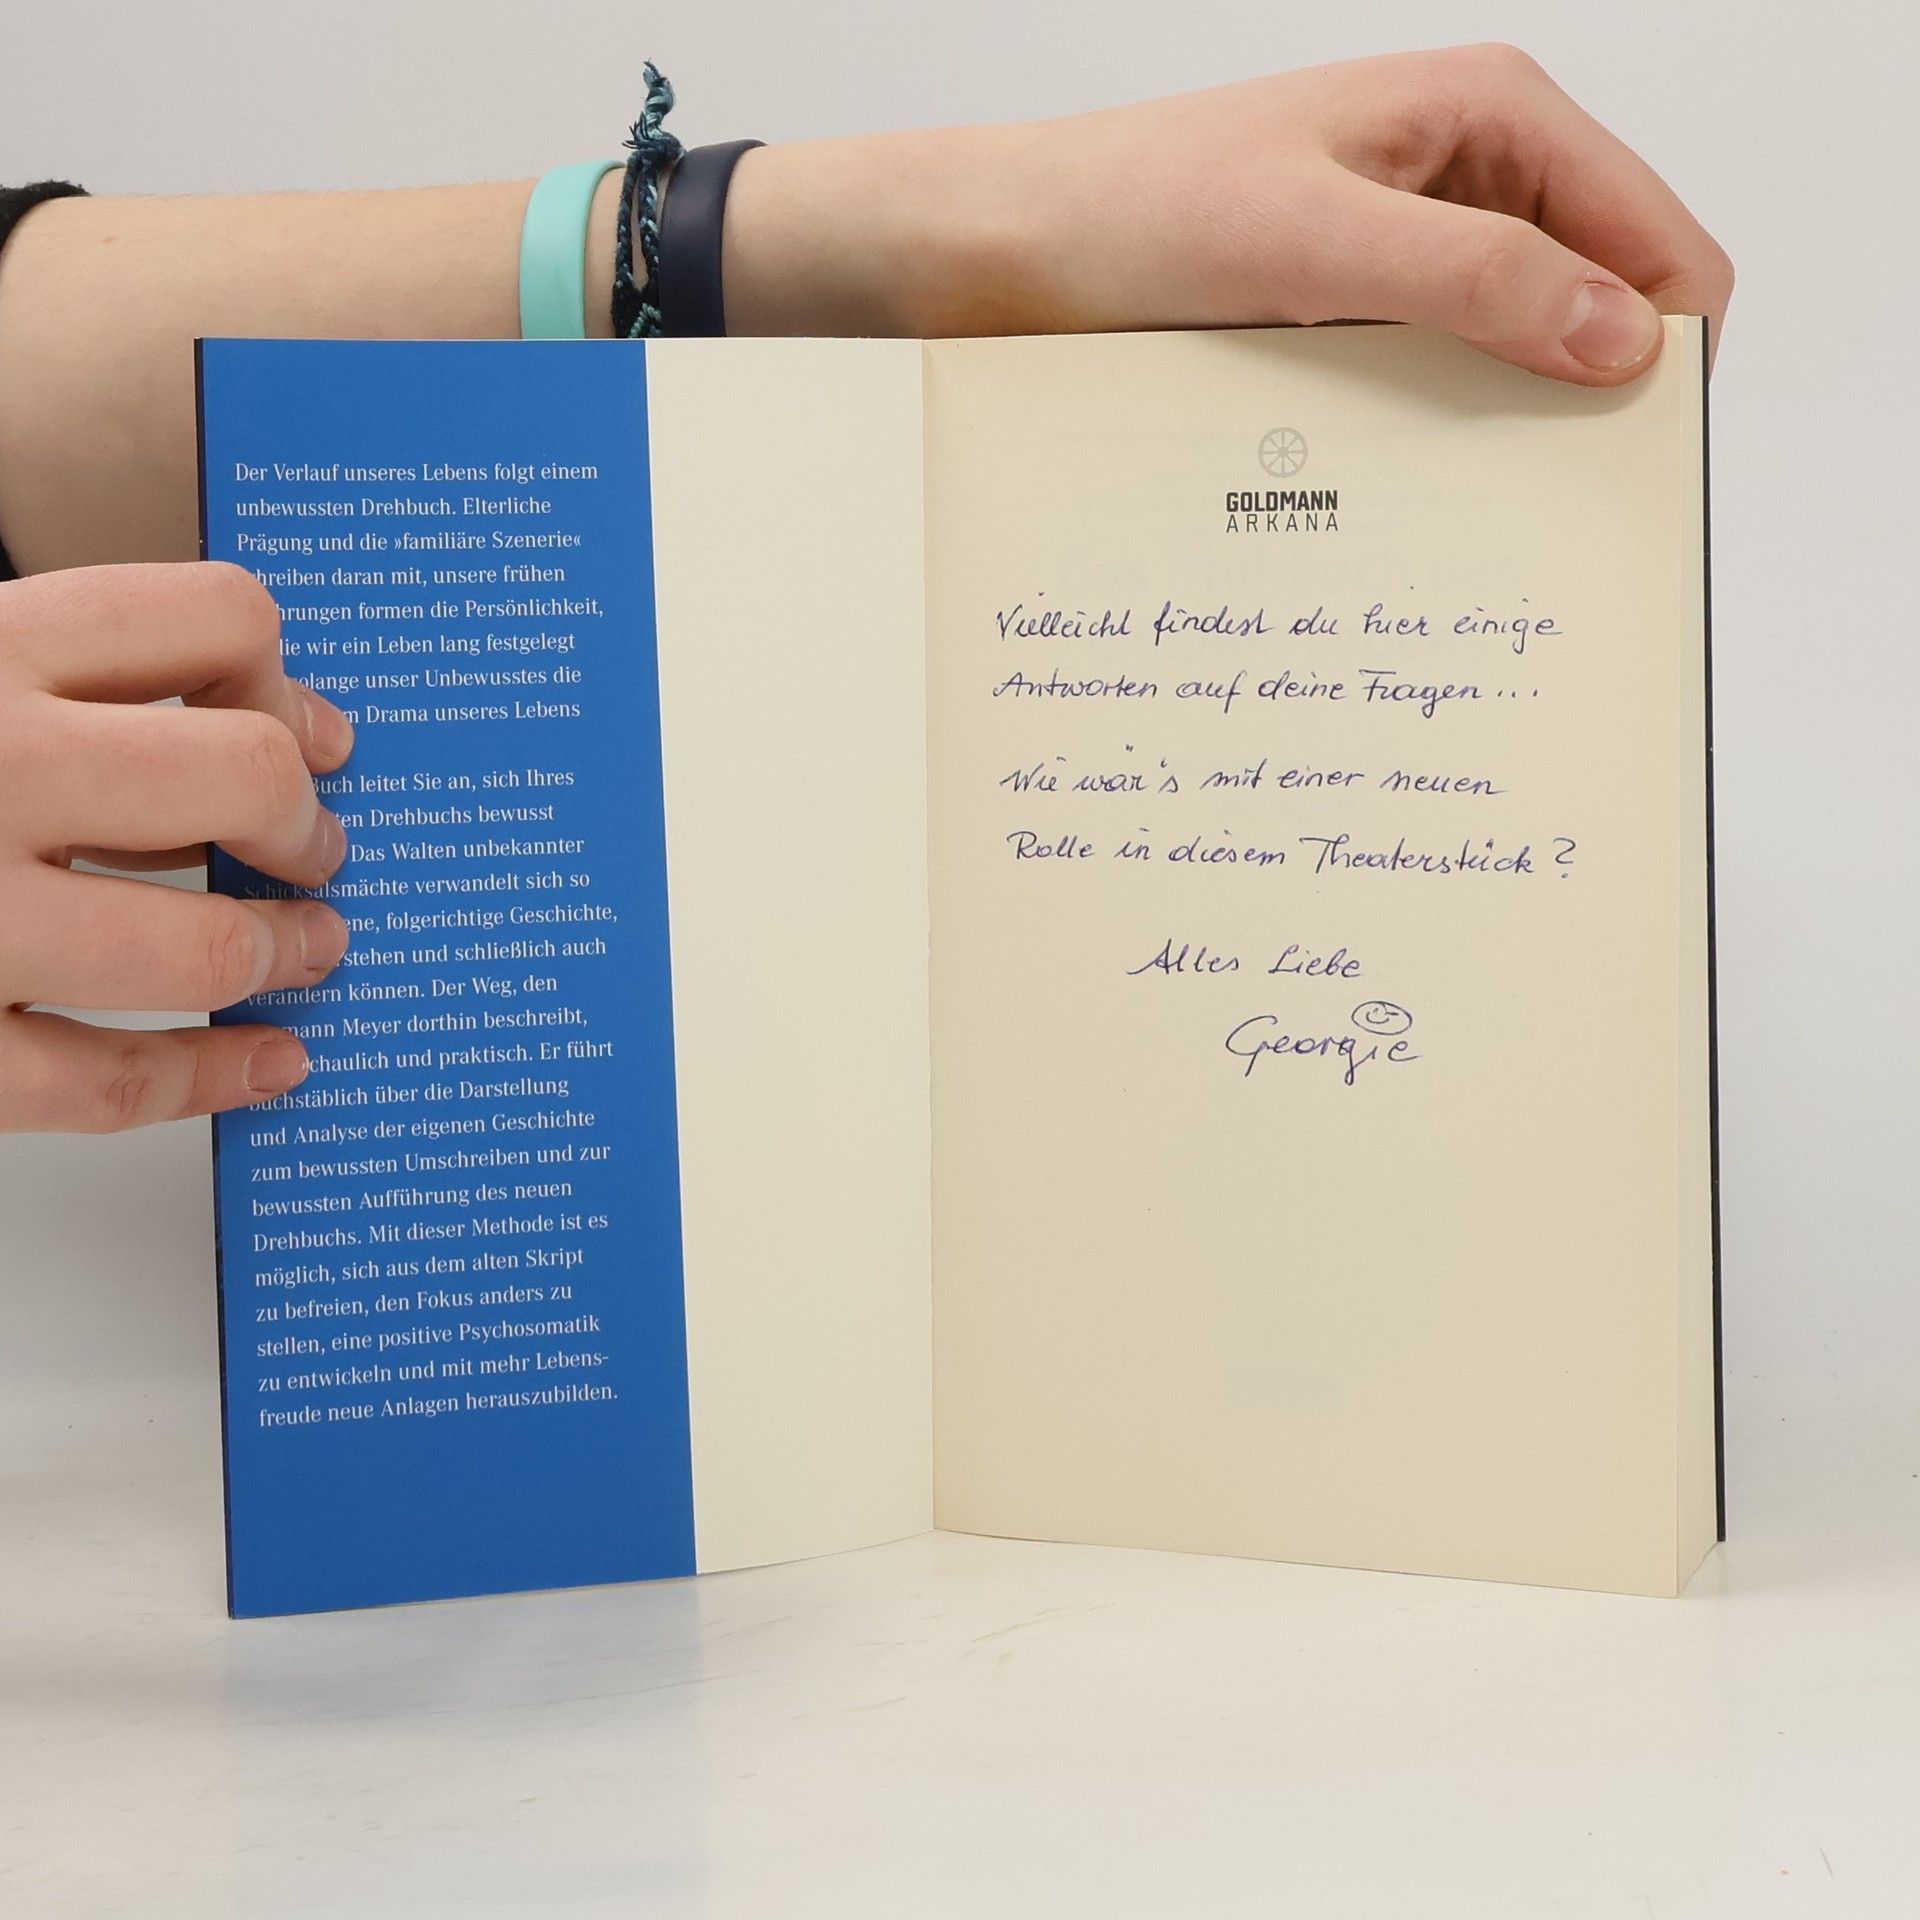 Der Verlauf unseres Lebens folgt einem
unbewussten Drehbuch. Elterliche
Prägung und die »familiäre Szenerie«
hreiben daran mit, unsere frühen
hrungen formen die Persönlichkeit,
die wir ein Leben lang festgelegt
olange unser Unbewusstes die
m Drama unseres Lebens
Buch leitet Sie an, sich Ihres
ten Drehbuchs bewusst
Das Walten unbekannter
Schicksalsmächte verwandelt sich so
ene, folgerichtige Geschichte,
rstehen und schließlich auch
verändern können. Der Weg, den
mann Meyer dorthin beschreibt,
chaulich und praktisch. Er führt
buchstäblich über die Darstellung
und Analyse der eigenen Geschichte
zum bewussten Umschreiben und zur
bewussten Aufführung des neuen
Drehbuchs. Mit dieser Methode ist es
möglich, sich aus dem alten Skript
zu befreien, den Fokus anders zu
stellen, eine positive Psychosomatik
zu entwickeln und mit mehr Lebens-
freude neue Anlagen herauszubilden.
GOLDMANN
ARKANA
Vielleicht findest du hier einige
Antworten auf deine Fragen ...
Wie wär's mit einer neuen
Rolle in diesem Theaterstück ?
Alles Liebe
Georgie